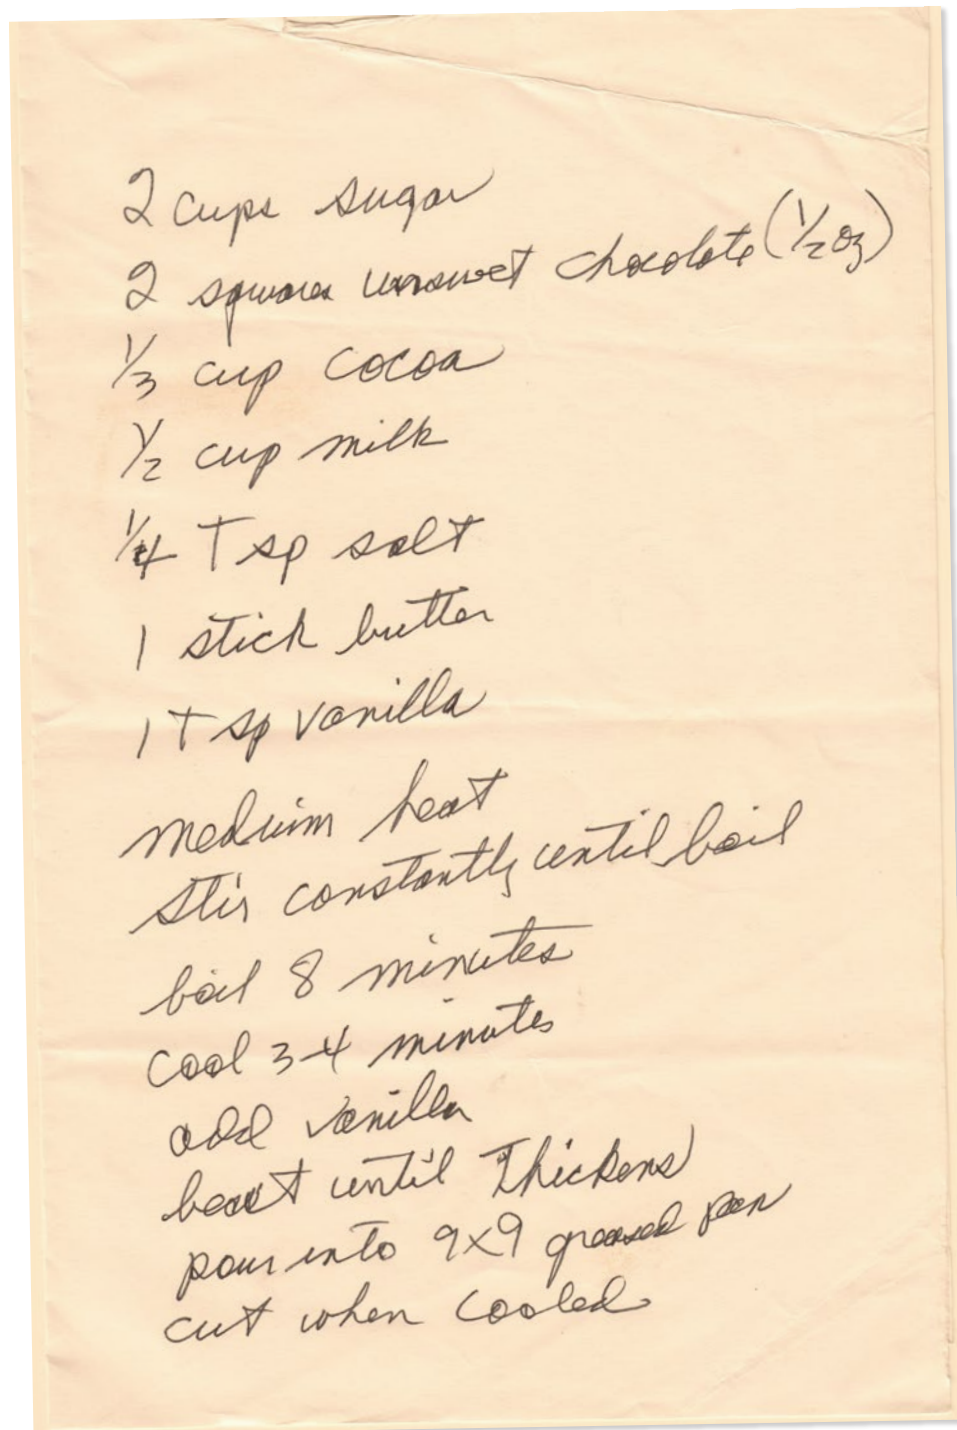 2 cups sugar
2 squares unsweet chocolate (1/2 oz)
1/3 cup cocoa
1/2 cup milk
1/4 Tsp salt
1 stick butter
1 Tsp vanilla
medium heat
Stir constantly until boil
boil 8 minutes
cool 3-4 minutes
add vanilla
beat until thickens
pour into 9x9 greased pan
cut when cooled